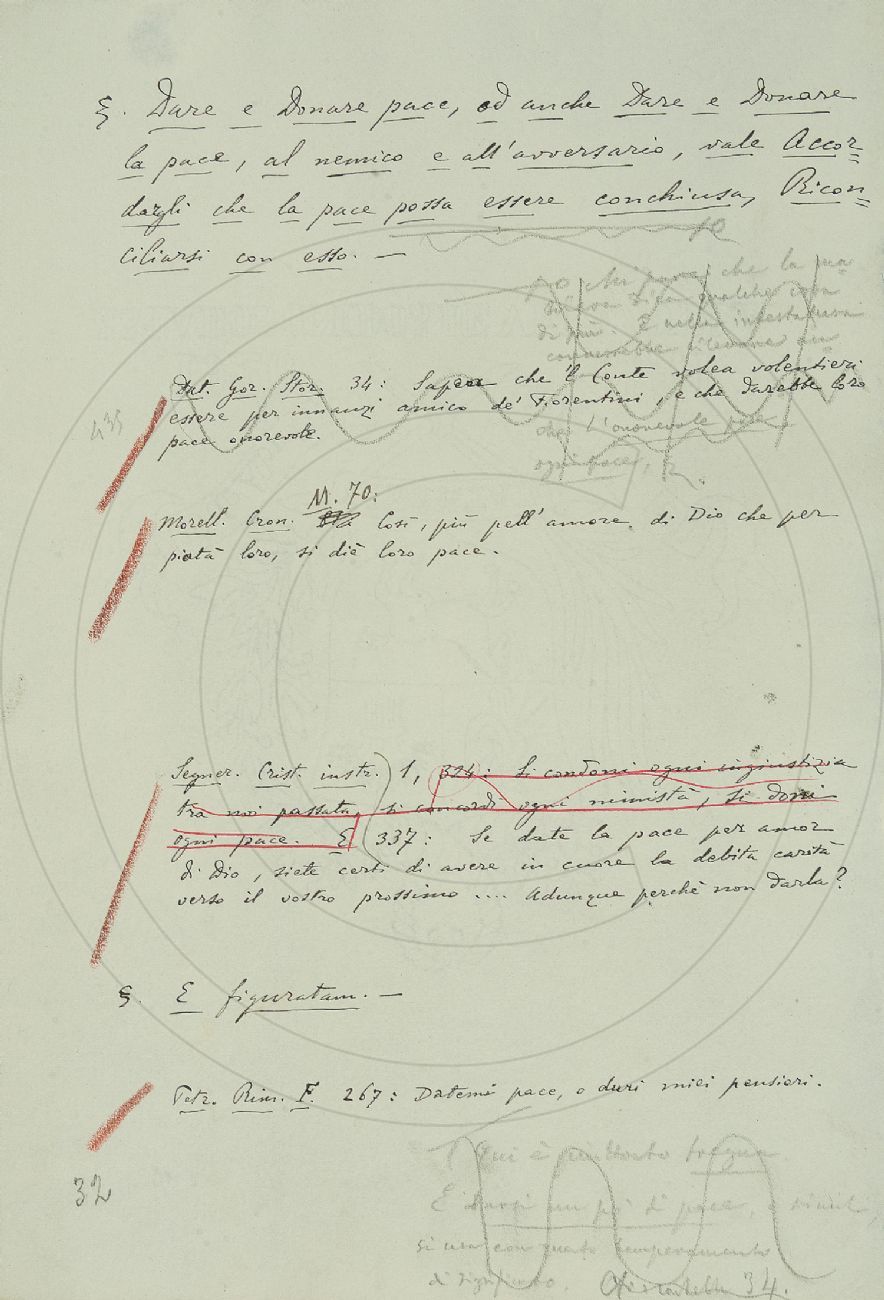 §. Dare e Donare pace, ed anche Dare e Donare
la pace, al nemico e all'avversario, vale Accor=
dargli che la pace possa essere conchiusa, Ricon=
ciliarsi con esso. —
che la
qualche cosa
di più. E nella intestatura
Dat. Gor. Stor. 34: Sapea che 'l Conte volea volentieri
essere per innanzi amico de' Fiorentini, e che darebbe loro
pace onorevole.
435
che l'onorevole
ogni pace,
M. 70:
Morell. Cron. Così, più pell'amore di Dio che per
pietà loro, si diè loro pace.
Segner. Crist. instr. 1, 324: Si condoni ogni ingiustizia
tra noi passata, si concordi ogni nimistà, si doni
ogni pace. E 337: Se date la pace per amor
di Dio, siate certi di avere in cuore la debita carità
verso il vostro prossimo .... Adunque perchè non darla?
§. E figuratam. —
Petr. Rim. F. 267: Datemi pace, o duri miei pensieri.
32
Qui è piuttosto tregua
E un pò di pace, e simili,
si usa con questo temperamento
di significato. 34.